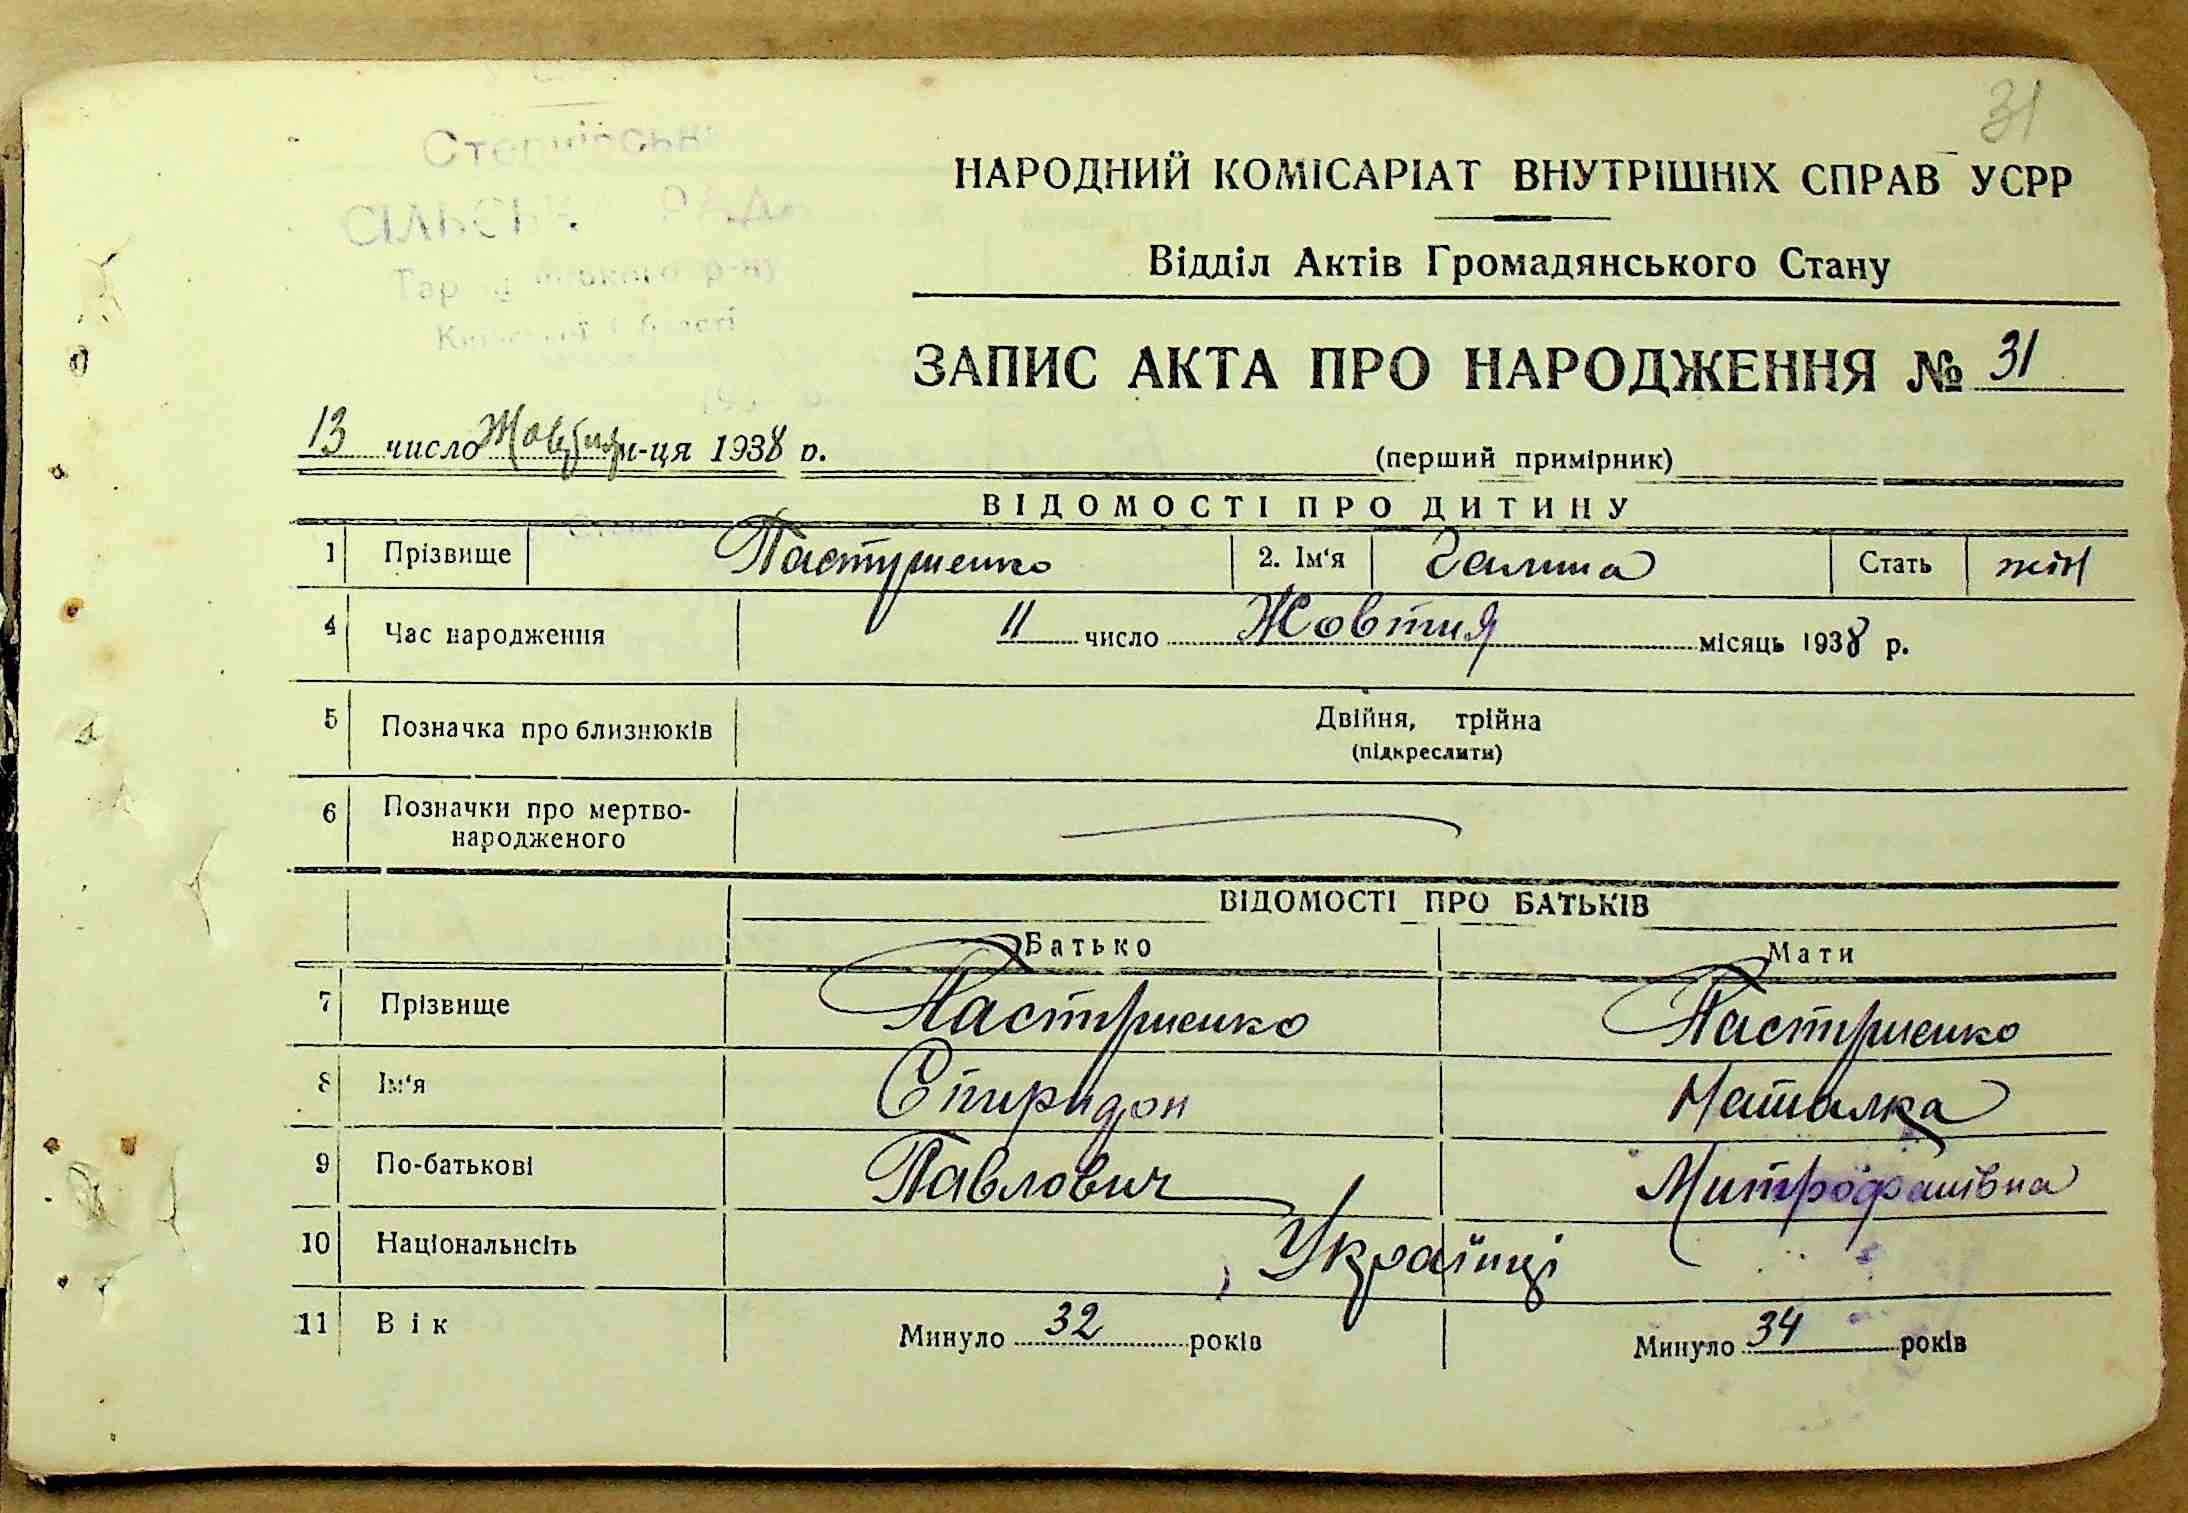 31
НАРОДНИЙ КОМІСАРІАТ ВНУТРІШНІХ СПРАВ УСРР
Відділ Актів Громадянського Стану
ЗАПИС АКТА ПРО НАРОДЖЕННЯ № 31
13 число Жовтня м-ця 1938 р.
(перший примірник)
ВІДОМОСТІ ПРО ДИТИНУ
1 Прізвище Пастушенко 2. Ім'я Галина Стать жін
4 Час народження 11 число Жовтня місяць 1938 р.
5 Позначка про близнюків Двійня, трійна
(підкреслити)
6 Позначки про мертво-
народженого
ВІДОМОСТІ ПРО БАТЬКІВ
Батько Мати
7 Прізвище Пастушенко Пастушенко
8 Ім'я Спиридон Наталка
9 По-батькові Павлович Митрофанівна
10 Національнсіть Українці
11 Вік Минуло 32 років Минуло 34 років